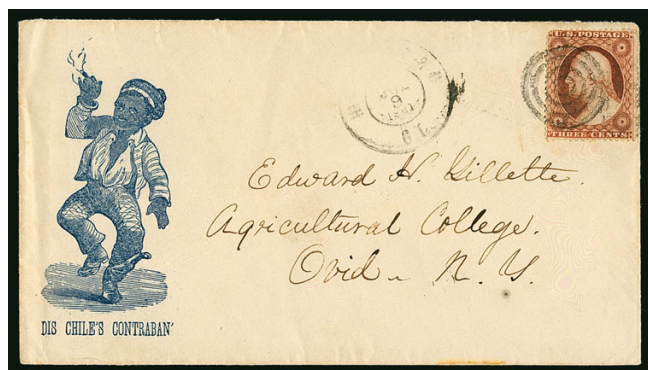 U.S. POSTAGE
THREE CENTS
Edward H. Gillette.
Agricultural College.
Ovid - N. Y.
DIS CHILE'S CONTRABAN'